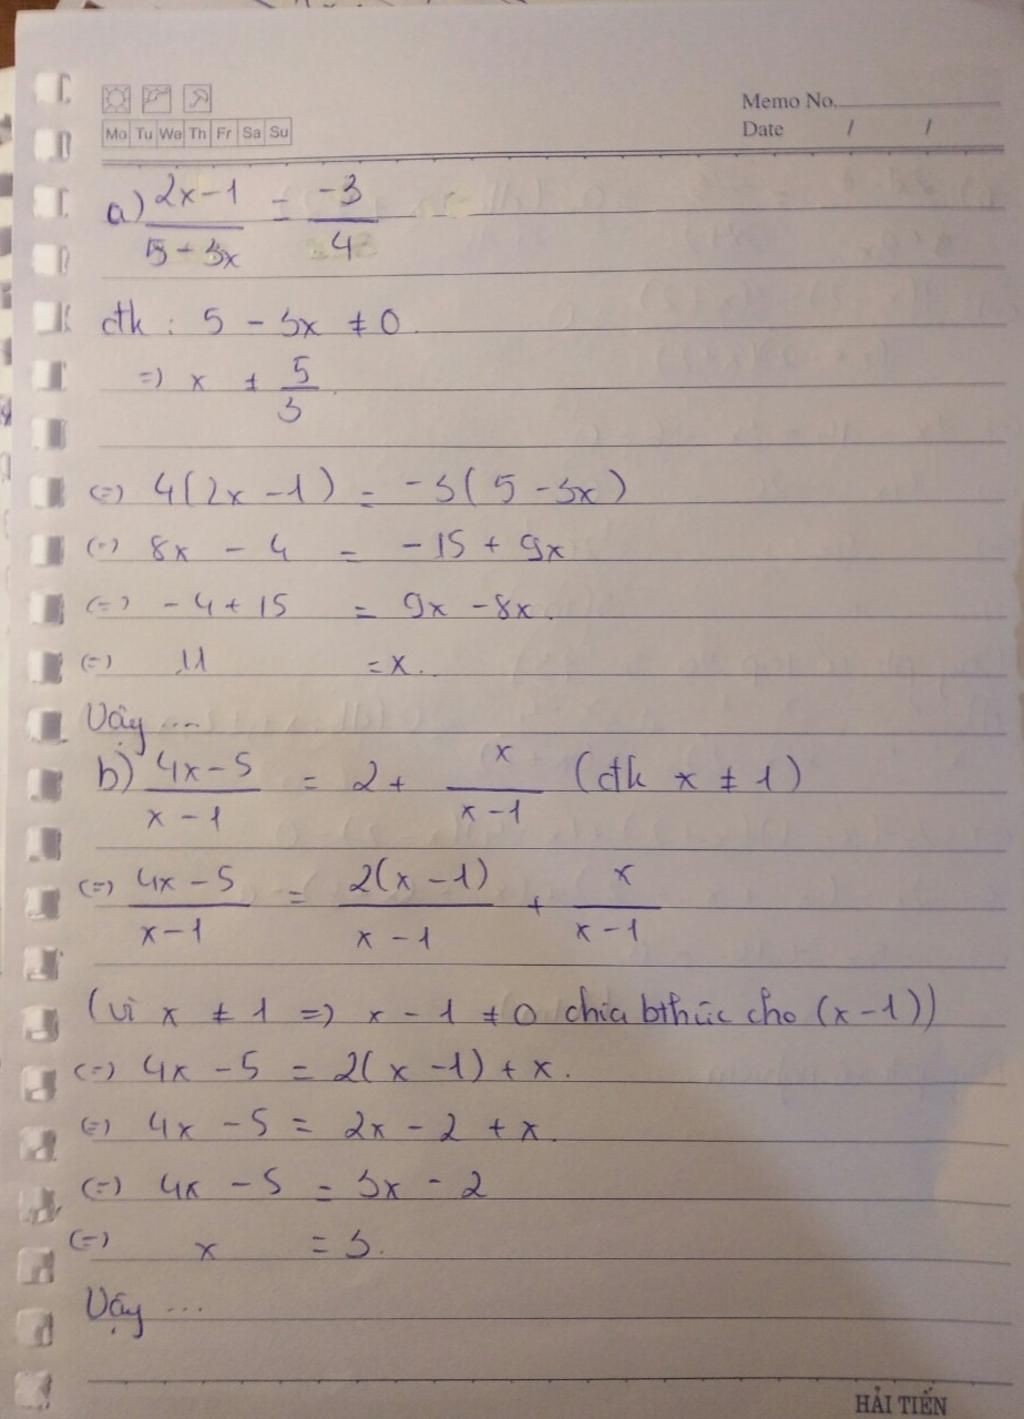 Memo No.
Mo Tu We Th Fr Sa Su
Date / /
a) (2x-1)/(5-3x) = -3/4
đk : 5 - 3x ≠ 0
=> x ≠ 5/3
(=) 4(2x - 1) = -3(5 - 3x)
(=) 8x - 4 = -15 + 9x
(=) -4 + 15 = 9x - 8x.
(=) 11 = x.
Vậy ...
b) (4x-5)/(x-1) = 2 + x/(x-1) (đk x ≠ 1)
(=) (4x-5)/(x-1) = 2(x-1)/(x-1) + x/(x-1)
(vì x ≠ 1 => x - 1 ≠ 0 chia bthức cho (x-1))
(=) 4x - 5 = 2(x-1) + x.
(=) 4x - 5 = 2x - 2 + x.
(=) 4x - 5 = 3x - 2
(=) x = 3.
Vậy ...
HẢI TIẾN